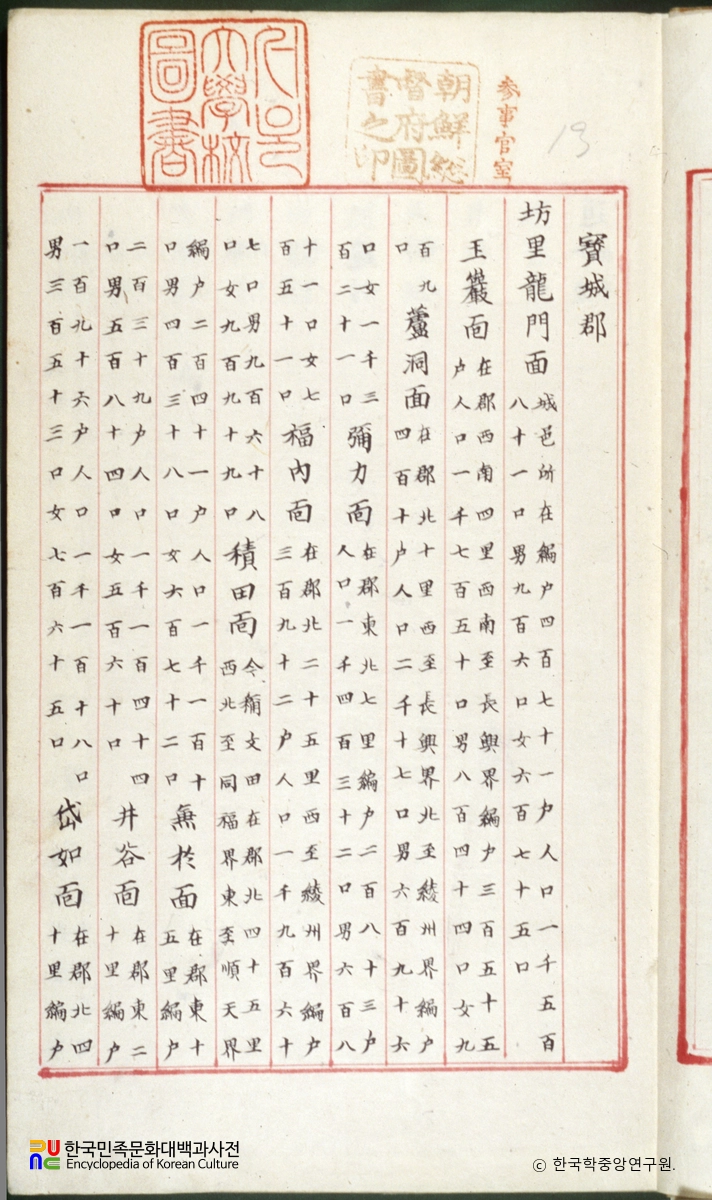 서울
大學校
圖書
朝鮮総
督府圖
書之印
參事官室
13
寶城郡
坊里龍門面 城邑所在編户四百七十一户人口一千五百
八十一口男九百六口女六百七十五口
王巖面 在郡西南四里西南至長興界編户三百五十五
户人口一千七百五十口男八百四十四口女九
百九
口 蘆洞面 在郡北十里西至長興界北至綾州界編户
四百十户人口二千十七口男六百九十六
口女一千三
百二十一口 彌力面 在郡東北七里編户二百八十三户
人口一千四百三十二口男六百八
十一口女七
百五十一口 福內面 在郡北二十五里西至綾州界編户
三百九十二户人口一千九百六十
七口男九百六十八
口女九百九十九口 積田面 今稱文田在郡北四十五里
西北至同福界東至順天界
編户二百四十一户人口一千一百十
口男四百三十八口女六百七十二口 無於面 在郡東十
五里編户
二百三十九户人口一千一百四十四
口男五百八十四口女五百六十口 井谷面 在郡東二
十里編户
一百九十六户人口一千一百十八口
男三百五十三口女七百六十五口 岱如面 在郡北四
十里編户
한국민족문화대백과사전
Encyclopedia of Korean Culture
ⓒ 한국학중앙연구원.